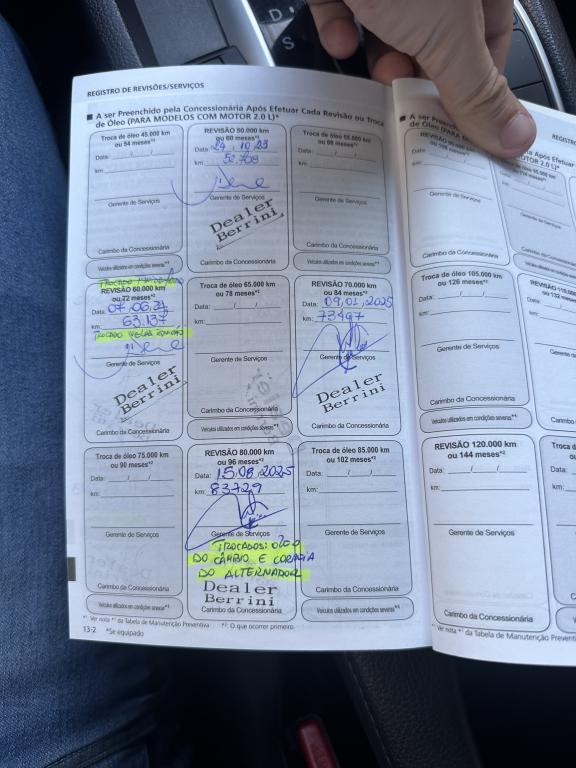 REGISTRO DE REVISÕES/SERVIÇOS
■ A ser Preenchido pela Concessionária Após Efetuar Cada Revisão ou Troca
de Óleo (PARA MODELOS COM MOTOR 2.0 L)*
Troca de óleo 45.000 km
ou 54 meses*²
Data: / /
km:
Gerente de Serviços
Carimbo da Concessionária
Veículos utilizados em condições severas*¹
REVISÃO 50.000 km
ou 60 meses*²
Data: 24 10 23
km: 52.708
Gerente de Serviços
Dealer
Berrini
Carimbo da Concessionária
Troca de óleo 55.000 km
ou 66 meses*²
Data: / /
km:
Gerente de Serviços
Carimbo da Concessionária
Veículos utilizados em condições severas*¹
TROCADO
REVISÃO 60.000 km
ou 72 meses*²
07 06
km: 63.137
TROCADO VELAS
Gerente de Serviços
Dealer
Berrini
Carimbo da Concessionária
Troca de óleo 65.000 km
ou 78 meses*²
Data: / /
km:
Gerente de Serviços
Carimbo da Concessionária
Veículos utilizados em condições severas*¹
REVISÃO 70.000 km
ou 84 meses*²
Data: 09 01 2025
km: 73497
Gerente de Serviços
Dealer
Berrini
Carimbo da Concessionária
Troca de óleo 75.000 km
ou 90 meses*²
Data: / /
km:
Gerente de Serviços
Carimbo da Concessionária
Veículos utilizados em condições severas*¹
REVISÃO 80.000 km
ou 96 meses*²
Data: 15 08 2025
km: 83729
Gerente de Serviços
TROCADOS: ÓLEO
DO CÂMBIO E CORREIA
DO ALTERNADOR
Dealer
Berrini
Carimbo da Concessionária
Troca de óleo 85.000 km
ou 102 meses*²
Data: / /
km:
Gerente de Serviços
Carimbo da Concessionária
Veículos utilizados em condições severas*¹
*¹: Ver nota *¹ da Tabela de Manutenção Preventiva *²: O que ocorrer primeiro.
13-2 *Se equipado
REGISTRO
■ A ser Preenchido pela Concessionária Após Efetuar
de Óleo (PARA MODELOS COM MOTOR 2.0 L)*
Gerente de Serviços
Carimbo da Concessionária
Troca de óleo 105.000 km
ou 126 meses*²
Data: / /
km:
Gerente de Serviços
Carimbo da Concessionária
Veículos utilizados em condições severas*¹
REVISÃO 120.000 km
ou 144 meses*²
Data: / /
km:
Gerente de Serviços
Carimbo da Concessionária
*¹: Ver nota *¹ da Tabela de Manutenção Preventiva